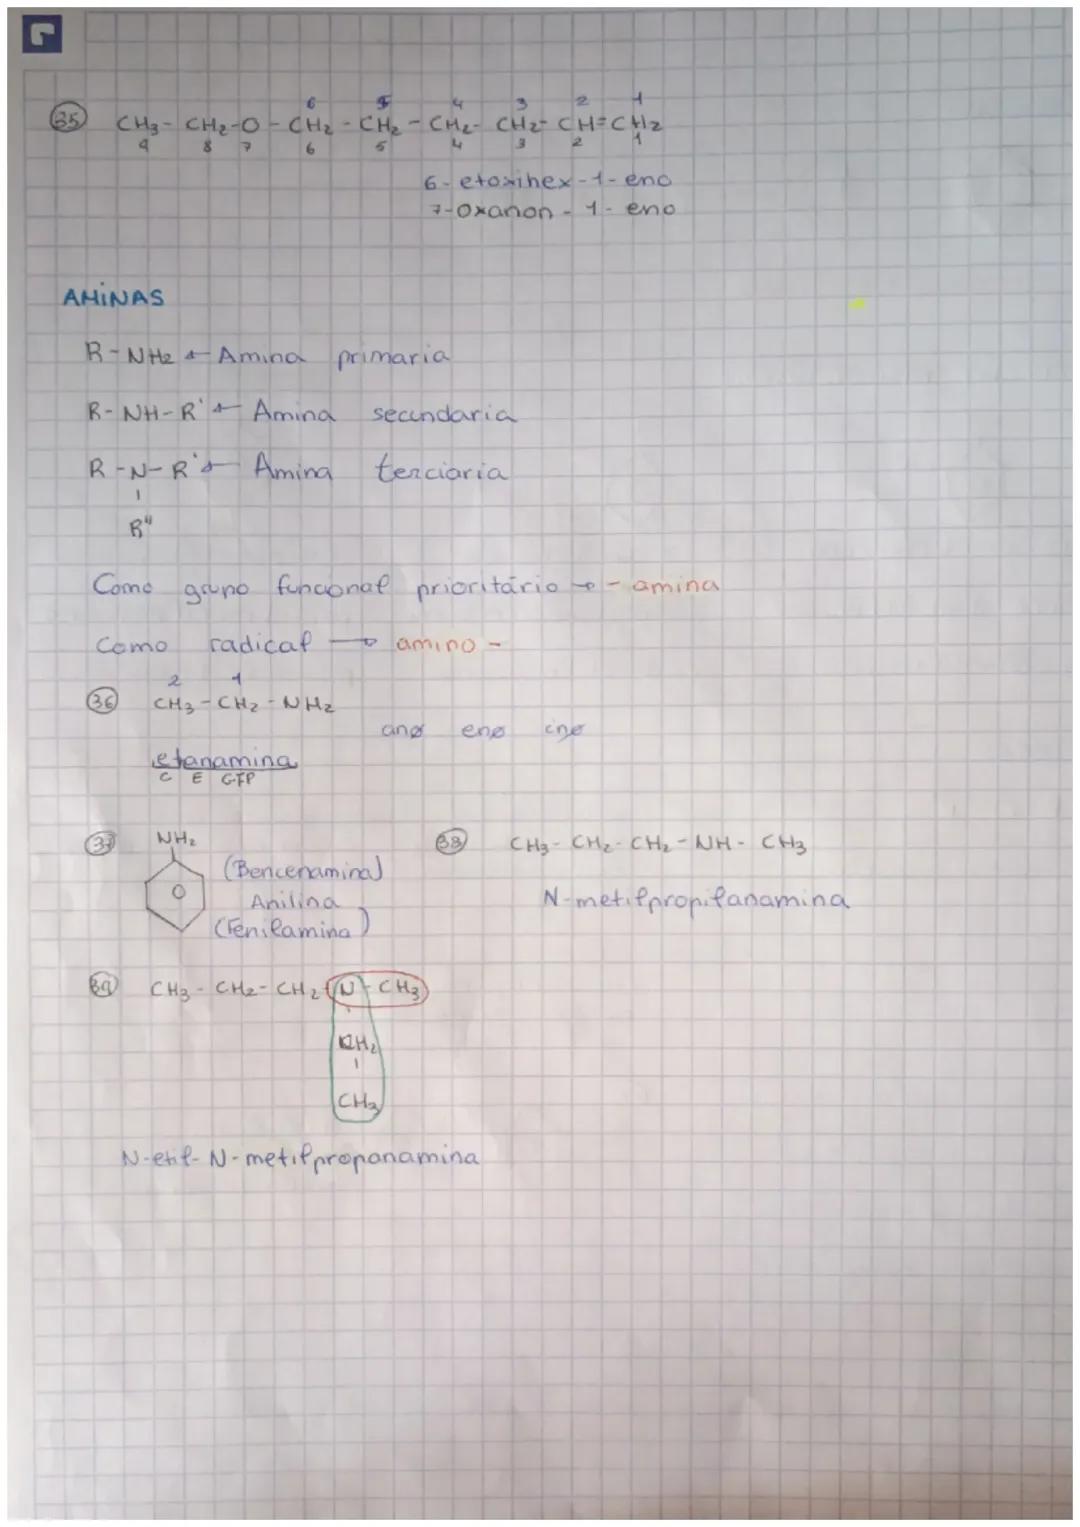 6 5 4 3 2 1
35 CH3 - CH2 - O - CH2 - CH2 - CH2 - CH2 - CH = CH2
9 8 7 6 5 4 3 2 1
6-etoxihex-1-eno
7-Oxanon-1-eno
AMINAS
R-NH2 ← Amina primaria
R-NH-R' ← Amina secundaria
R-N-R' ← Amina terciaria
R"
Como grupo funcional prioritário → -amina
Como radical → amino-
2 1
36 CH3-CH2-NH2
ano eno ino
etanamina
C E GFP
37 NH2
(Bencenamina)
Anilina
(Fenilamina)
38 CH3-CH2-CH2-NH-CH3
N-metilpropilanamina
39 CH3-CH2-CH2-N-CH3
CH2
CH3
N-etil-N-metilpropanamina